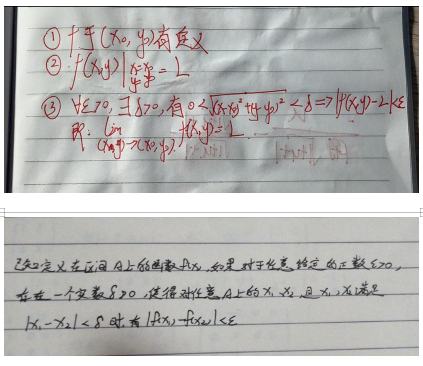 ① f于(x₀, y₀)有定义
② f(x,y)|x=x₀ y=y₀ = L
③ ∀ε>0, ∃δ>0, 有 0<√(x-x₀)²+(y-y₀)² <δ => |f(x,y)-L|<ε
即: lim (x,y)→(x₀,y₀) f(x,y)=L.
设定义在区间A上的函数f(x), 如果对于任意给定的正数ε>0,
存在一个实数δ>0, 使得对任意A上的x₁, x₂, 且x₁, x₂满足
|x₁-x₂|<δ 时, 有 |f(x₁)-f(x₂)|<ε